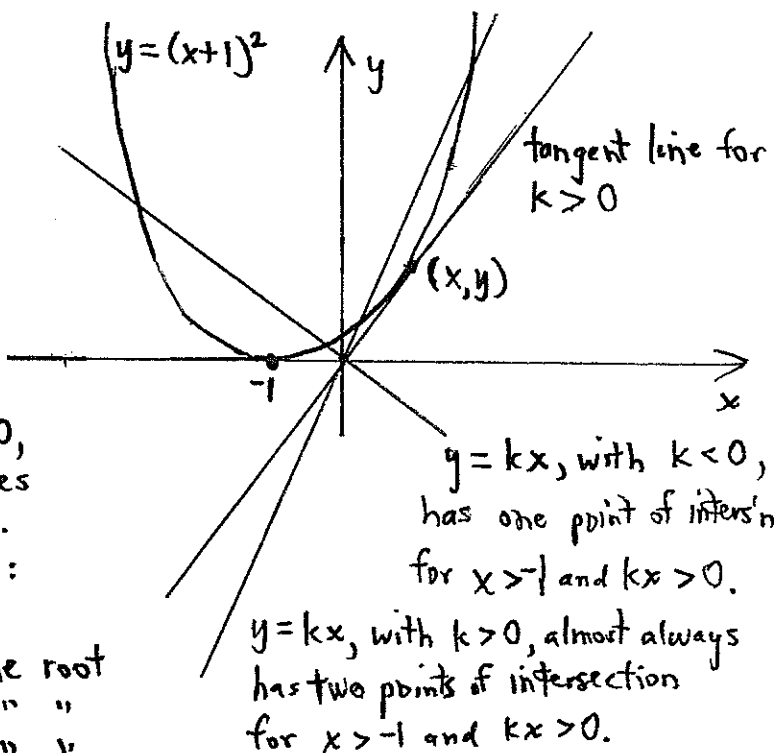 y = (x+1)²
y
tangent line for
k > 0
(x,y)
-1
x
0,
es
.
:
e root
" "
" "
y = kx, with k < 0,
has one point of inters'n
for x > -1 and kx > 0.
y = kx, with k > 0, almost always
has two points of intersection
for x > -1 and kx > 0.